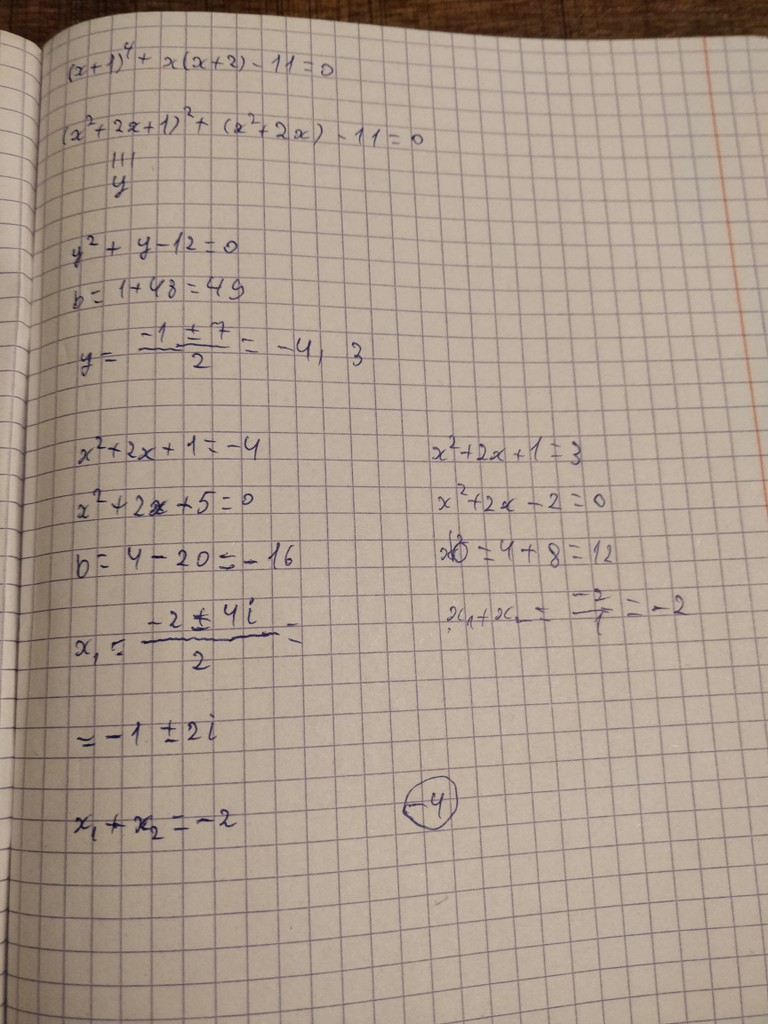 (x+1)⁴ + x(x+2) - 11 = 0
(x²+2x+1)² + (x²+2x) - 11 = 0
|||
y
y² + y - 12 = 0
D = 1+48 = 49
y = (-1 ± 7)/2 = -4, 3
x²+2x+1 = -4
x²+2x+5 = 0
D = 4 - 20 = -16
x₁ = (-2 ± 4i)/2 =
= -1 ± 2i
x₁ + x₂ = -2
x²+2x+1 = 3
x²+2x-2 = 0
D = 4+8 = 12
x₁+x₂ = -2/1 = -2
-4